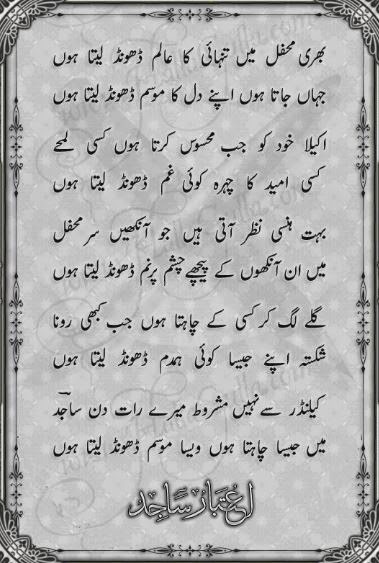 بھری محفل میں تنہائی کا عالم ڈھونڈ لیتا ہوں
جہاں جاتا ہوں اپنے دل کا موسم ڈھونڈ لیتا ہوں
اکیلا خود کو جب محسوس کرتا ہوں کسی لمحے
کسی امید کا چہرہ کوئی غم ڈھونڈ لیتا ہوں
بہت ہنسی نظر آتی ہیں جو آنکھیں سر محفل
میں ان آنکھوں کے پیچھے چشم پرنم ڈھونڈ لیتا ہوں
گلے لگ کر کسی کے چاہتا ہوں جب کبھی رونا
شکستہ اپنے جیسا کوئی ہمدم ڈھونڈ لیتا ہوں
کیلنڈر سے نہیں مشروط میرے رات دن ساجد
میں جیسا چاہتا ہوں ویسا موسم ڈھونڈ لیتا ہوں
اعتبار ساجد